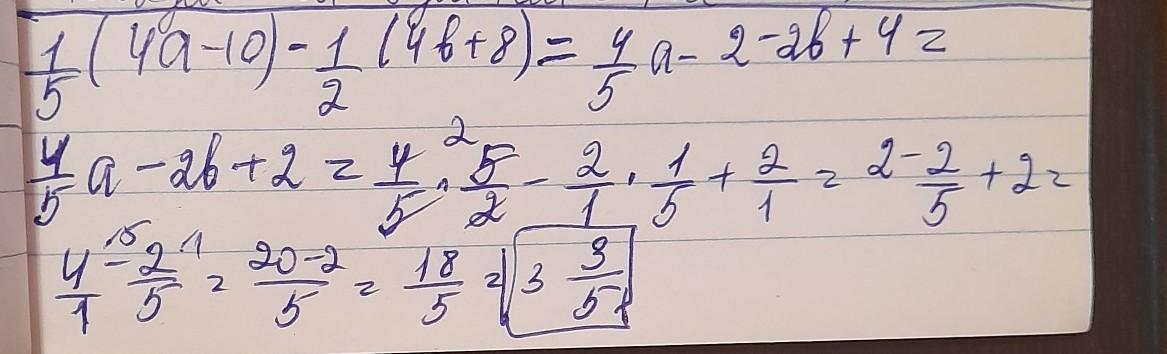 1/5 (4a-10) - 1/2 (4b+8) = 4/5 a - 2 - 2b + 4 =
4/5 a - 2b + 2 = 4/5 · 5/2 - 2/1 · 1/5 + 2/1 = 2 - 2/5 + 2 =
4/1 - 2/5 = 20-2/5 = 18/5 = 3 3/5